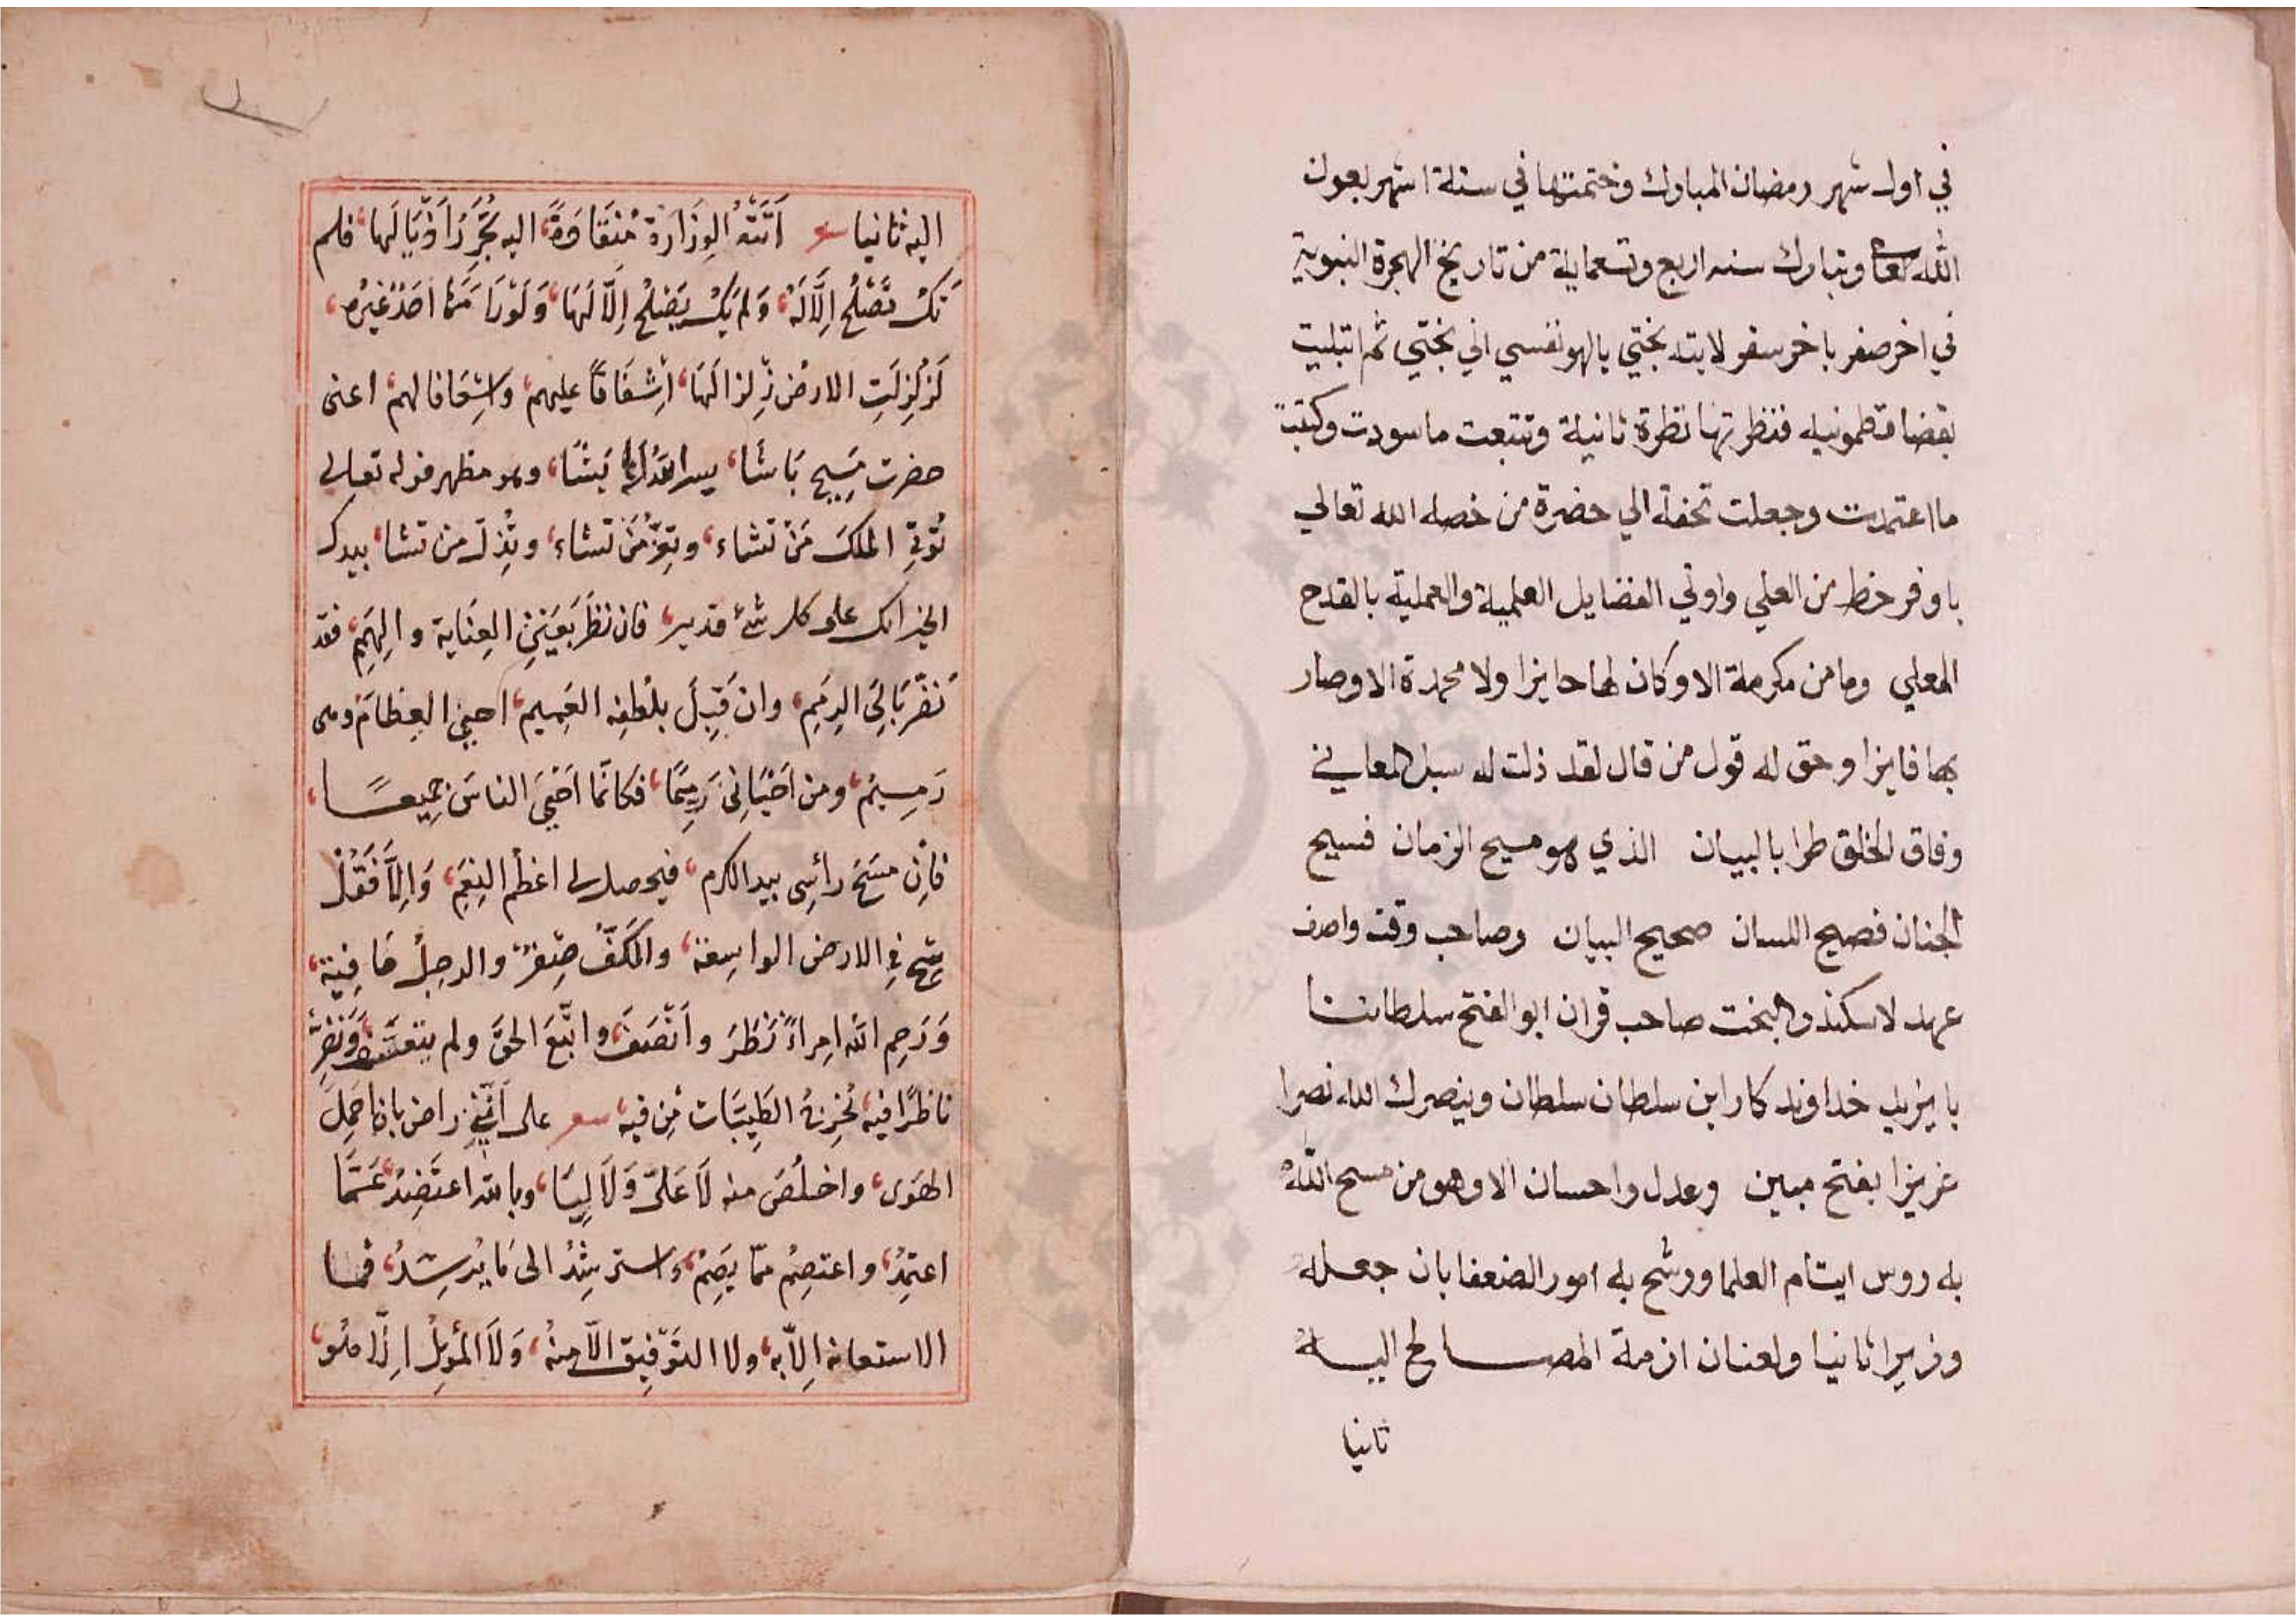 في اول شهر رمضان المبارك وختمتها في ستة اشهر بعون
الله تعالى وتبارك سنه اربع وتسعماية من تاريخ الهجرة النبوية
في اخر صفر باخر سفر لابتد بختي بالهو نفسي اني بختي ثم ابتليت
بقضا قطمونيه فنظرتها نظرة ثانية وتتبعت ما سودت وكتبت
ما اعتمدت وجعلت تحفة الي حضرة من خصه الله تعالي
باوفر خط من العلي واوتي الفضايل العلمية والعملية بالقدح
المعلي وما من مكرمة الا وكان لها حايزا ولا محمدة الا وصار
بها فايزا وحق له قول من قال لقد ذلت له سبل المعاني
وفاق الخلق طرا بالبيان الذي هو مسيح الزمان فسيح
الجنان فصيح اللسان صحيح البيان وصاحب وقت واصف
عهد لاسكندر البخت صاحب قران ابو الفتح سلطاننا
بايزيد خداوند كار ابن سلطان سلطان وينصرك الله نصرا
عزيزا بفتح مبين وعدل واحسان الا وهو من مسح الله
به روس ايتام العلما ورشح به امور الضعفا بان جعله
وزيرا ثانيا ولعنان ازمة المصالح اليه
ثانيا
اليه ثانيا شعر اَتَتْهُ الوِزَارَة مُنْقَادَةً، اليه تُجَرِّرُ اَذْيَالَها، فلم
تَكُ تَصْلُحُ اِلَّا لَهُ، وَلم يَكُ يَصْلُحُ اِلَّا لَهَا، وَلَوْ رَامَهَا اَحَدٌ غَيْرُه،
لَزُلْزِلَتِ الارْض زِلزالَهَا، اِشْفَاقًا عليهم، واسْعَافا لهم، اعنى
حضرت مَسِيح بَاشَا، يسر الله له مَا يَشَا، وهو مظهر قوله تعالى
تُؤتِي الملكَ مَنْ تشاء، وتعِزُّ مَن تشاء، وتُذِلّ من تشا، بيدك
الخير انك على كل شئ قدير، فان نظَرَ بعَيْنِ العِنَاية والهِمَمِ، فقد
نضّر بَالِيَ الرِمَمِ، وان قَبِلَ بلُطفِه العَمِيم، احيى العِظَامَ وهى
رَمِيمٌ، ومن اَحْيَانِى رَمِيمًا، فكانّما اَحْيَى الناسَ جَمِيعًا،
فاِن مسَحَ رأسِى بيد الكرم، فيحصل لى اعظُم النِعَمِ، وَاِلَّا فَقُلْ
سِحْ فى الارض الواسِعة، والكَفُّ صِفْرٌ والرِجلُ حَافِية،
وَرَحِم الله امراءً نَظَرَ واَنْصَفَ، واتّبَعَ الحَقَّ ولم يتعسَّف، ونضّر
ناظرًا فيه، يُخْرِجُ الطَيِّبَات مِن فيه، شعر على اَنّنِى راض بان اَحمِلَ
الهَوَى، واخلُصَ منه لَا عَلَىّ وَلَا لِيَا، وبالله اعتَضِدُ، عَمَّا
اعتمِدُ، واعتصِمُ ممّا يَصِمُ، واسترشِدُ الى مَا يُرشِدُ، فما
الاستعانه اِلاّ به، ولا التَوّفِيق الّا منهُ، وَلَا المَوْئِلُ اِلّا هُو،